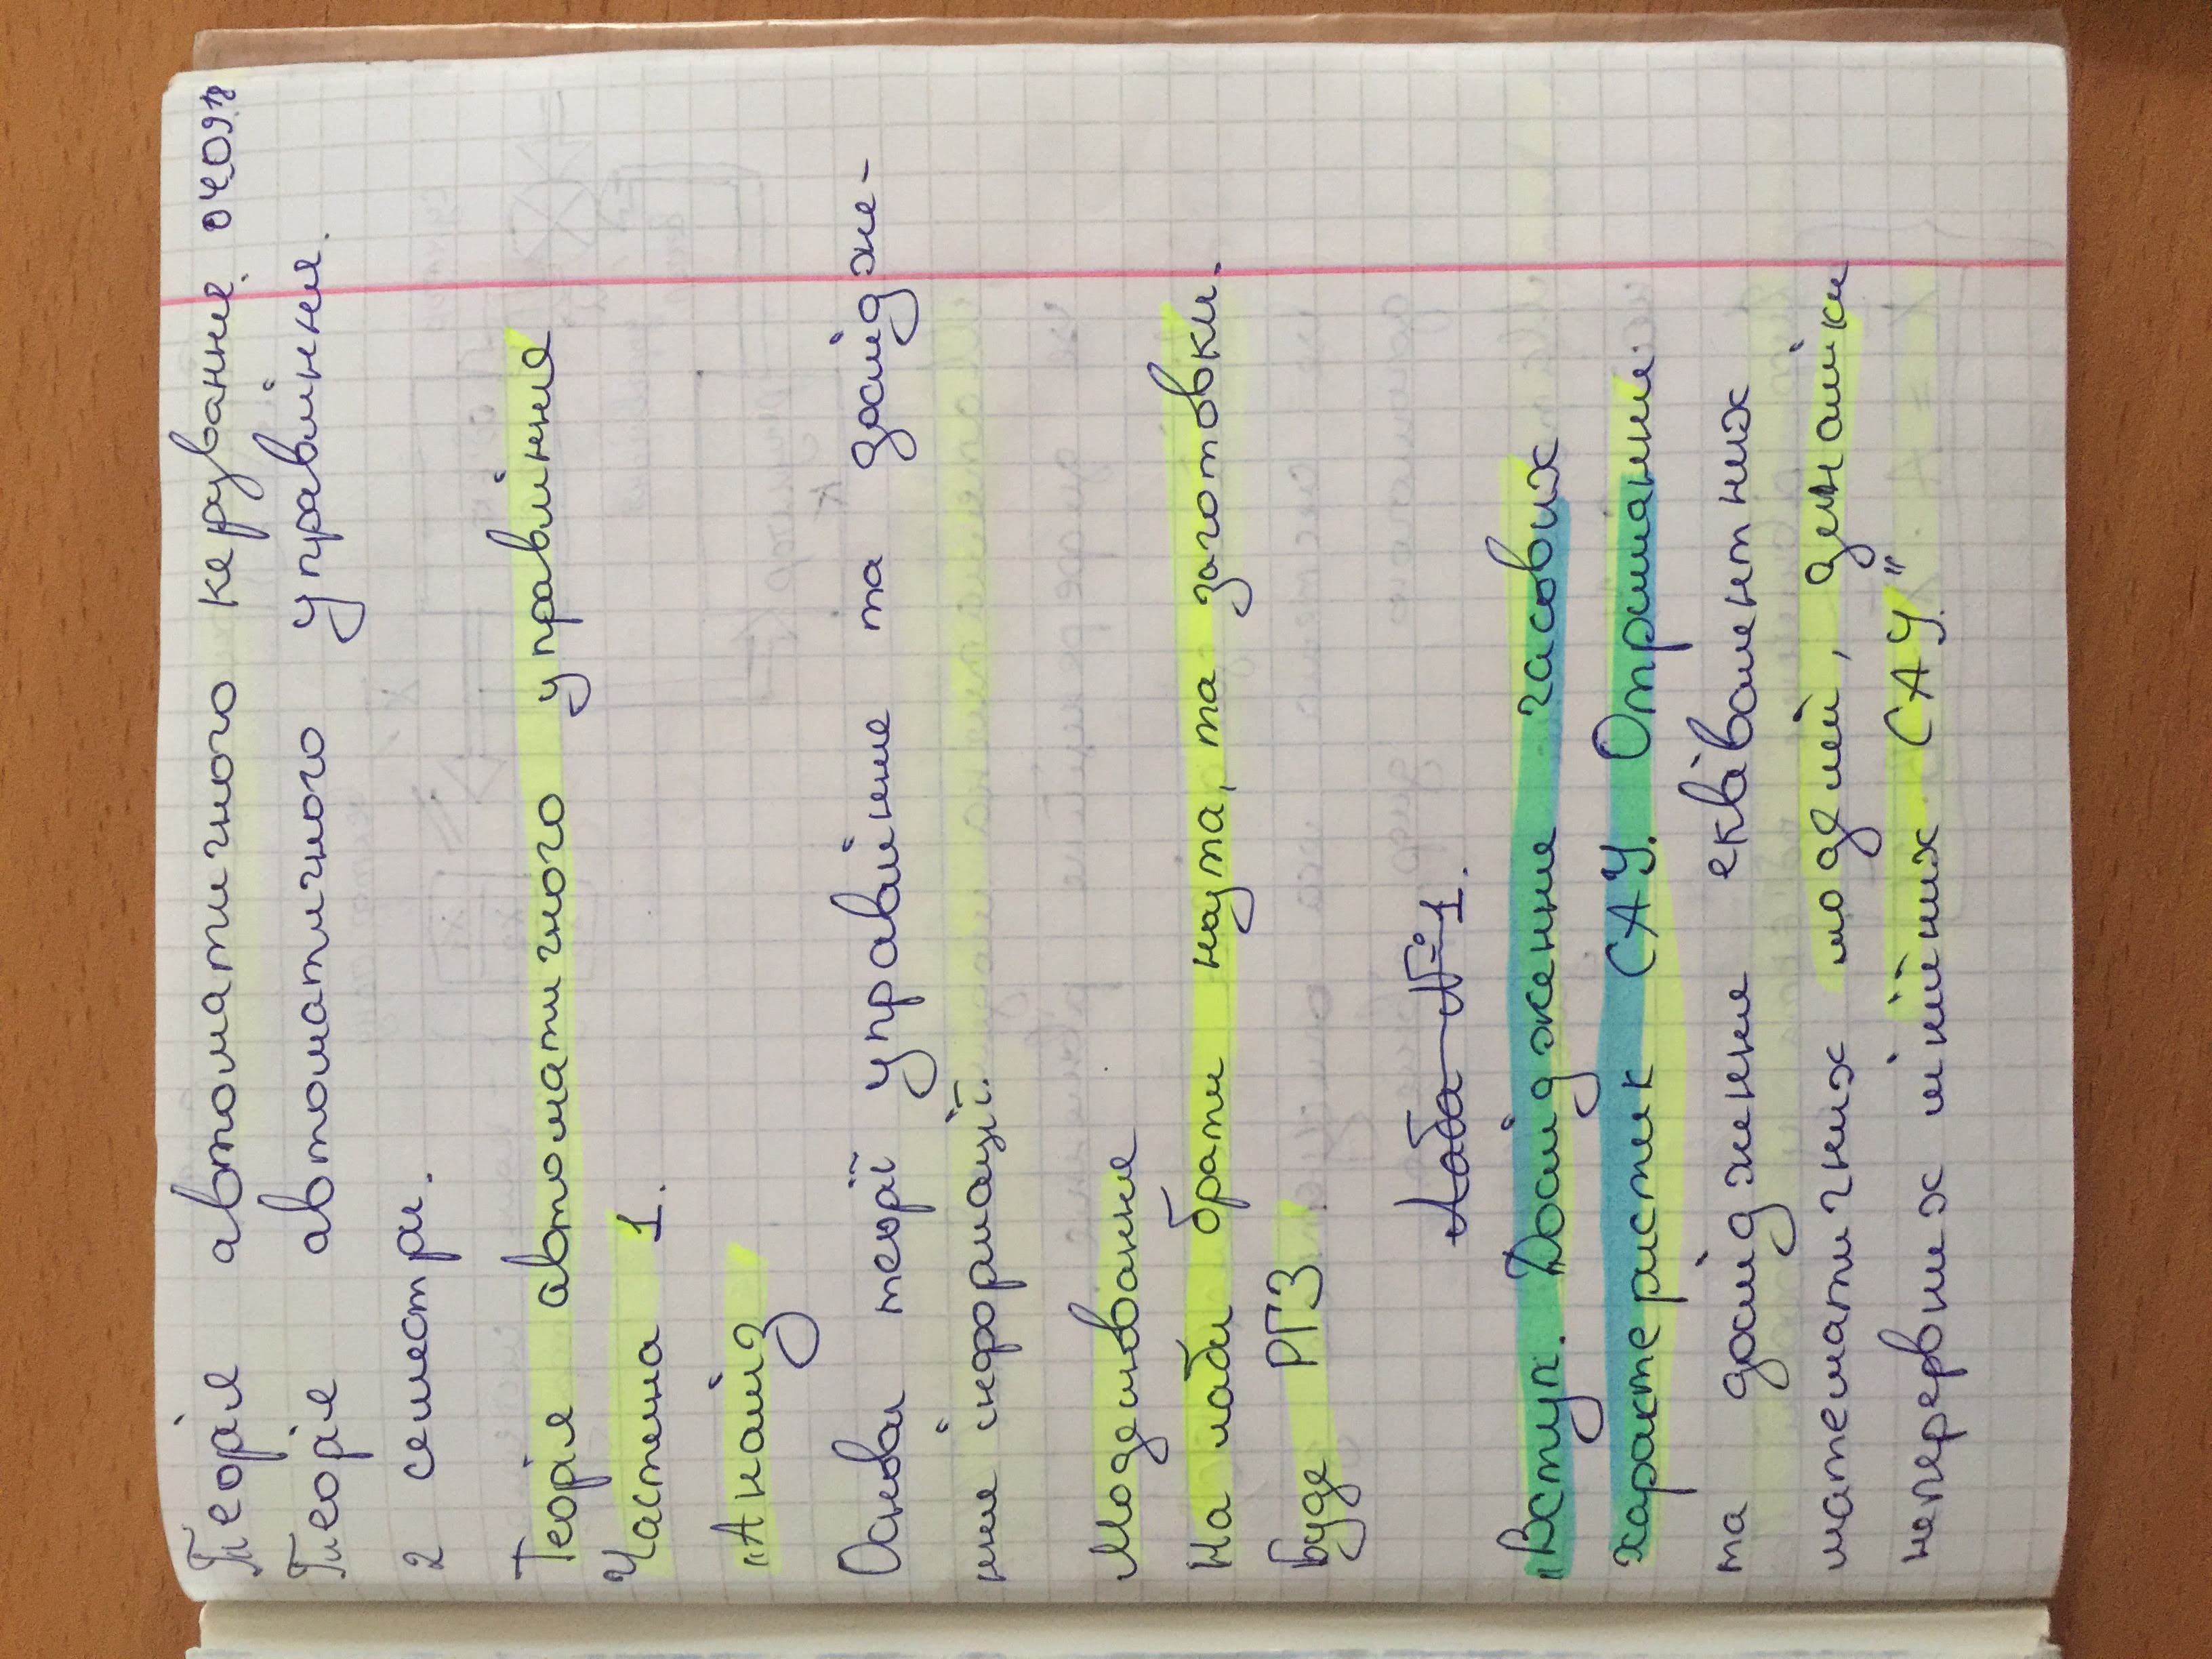 Теорія автоматичного керування. 04.09.18
Теорія автоматичного управління.
2 семестри.
Теорія автоматичного управління
Частина 1.
"Аналіз
Основи теорії управління та дослідже-
ння інформації.
Моделювання
На лаби брати ноута, та заготовки.
Буде РГЗ
Лаба №1.
"Вступ. Дослідження часових
характеристик САУ. Отримання
та дослідження еквівалентних
математичних моделей, динаміки
неперервних лінійних САУ."